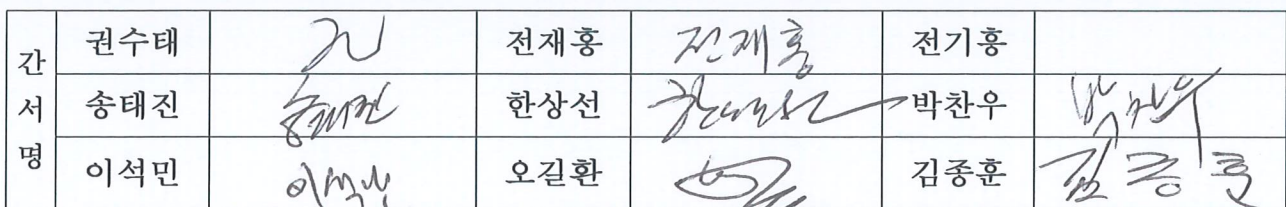 간 권수태 권 전재홍 전재홍 전기홍
서 송태진 송태진 한상선 한상선 박찬우 박찬우
명 이석민 이석민 오길환 김종훈 김종훈